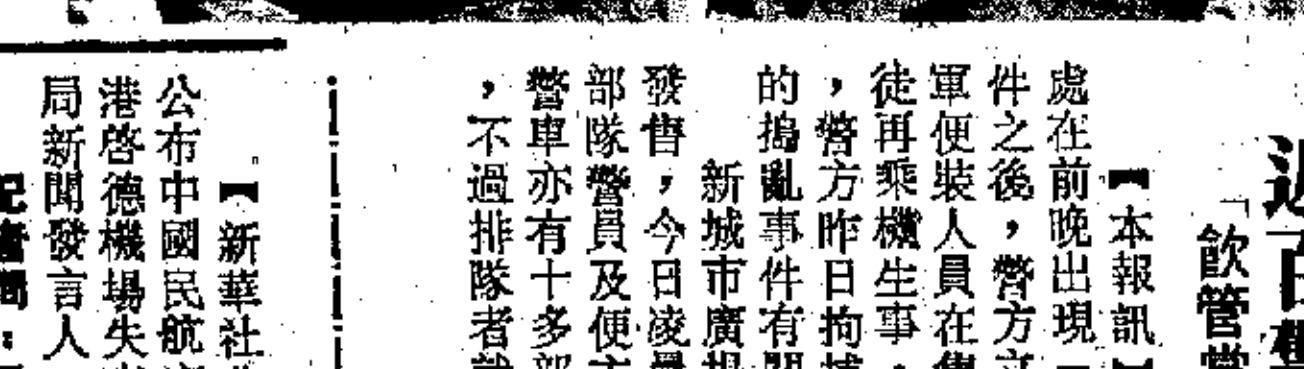 「飲管
【本報訊】
處在前晚出現
件之後，警方
軍便裝人員在
徒再乘機生事，
，警方昨日拘
的搗亂事件有
新城市廣
發售，今日凌
部隊警員及便
警車亦有十多
，不過排隊者
【新華社
公布中國民航
港啓德機場失
局新聞發言人
記者問：